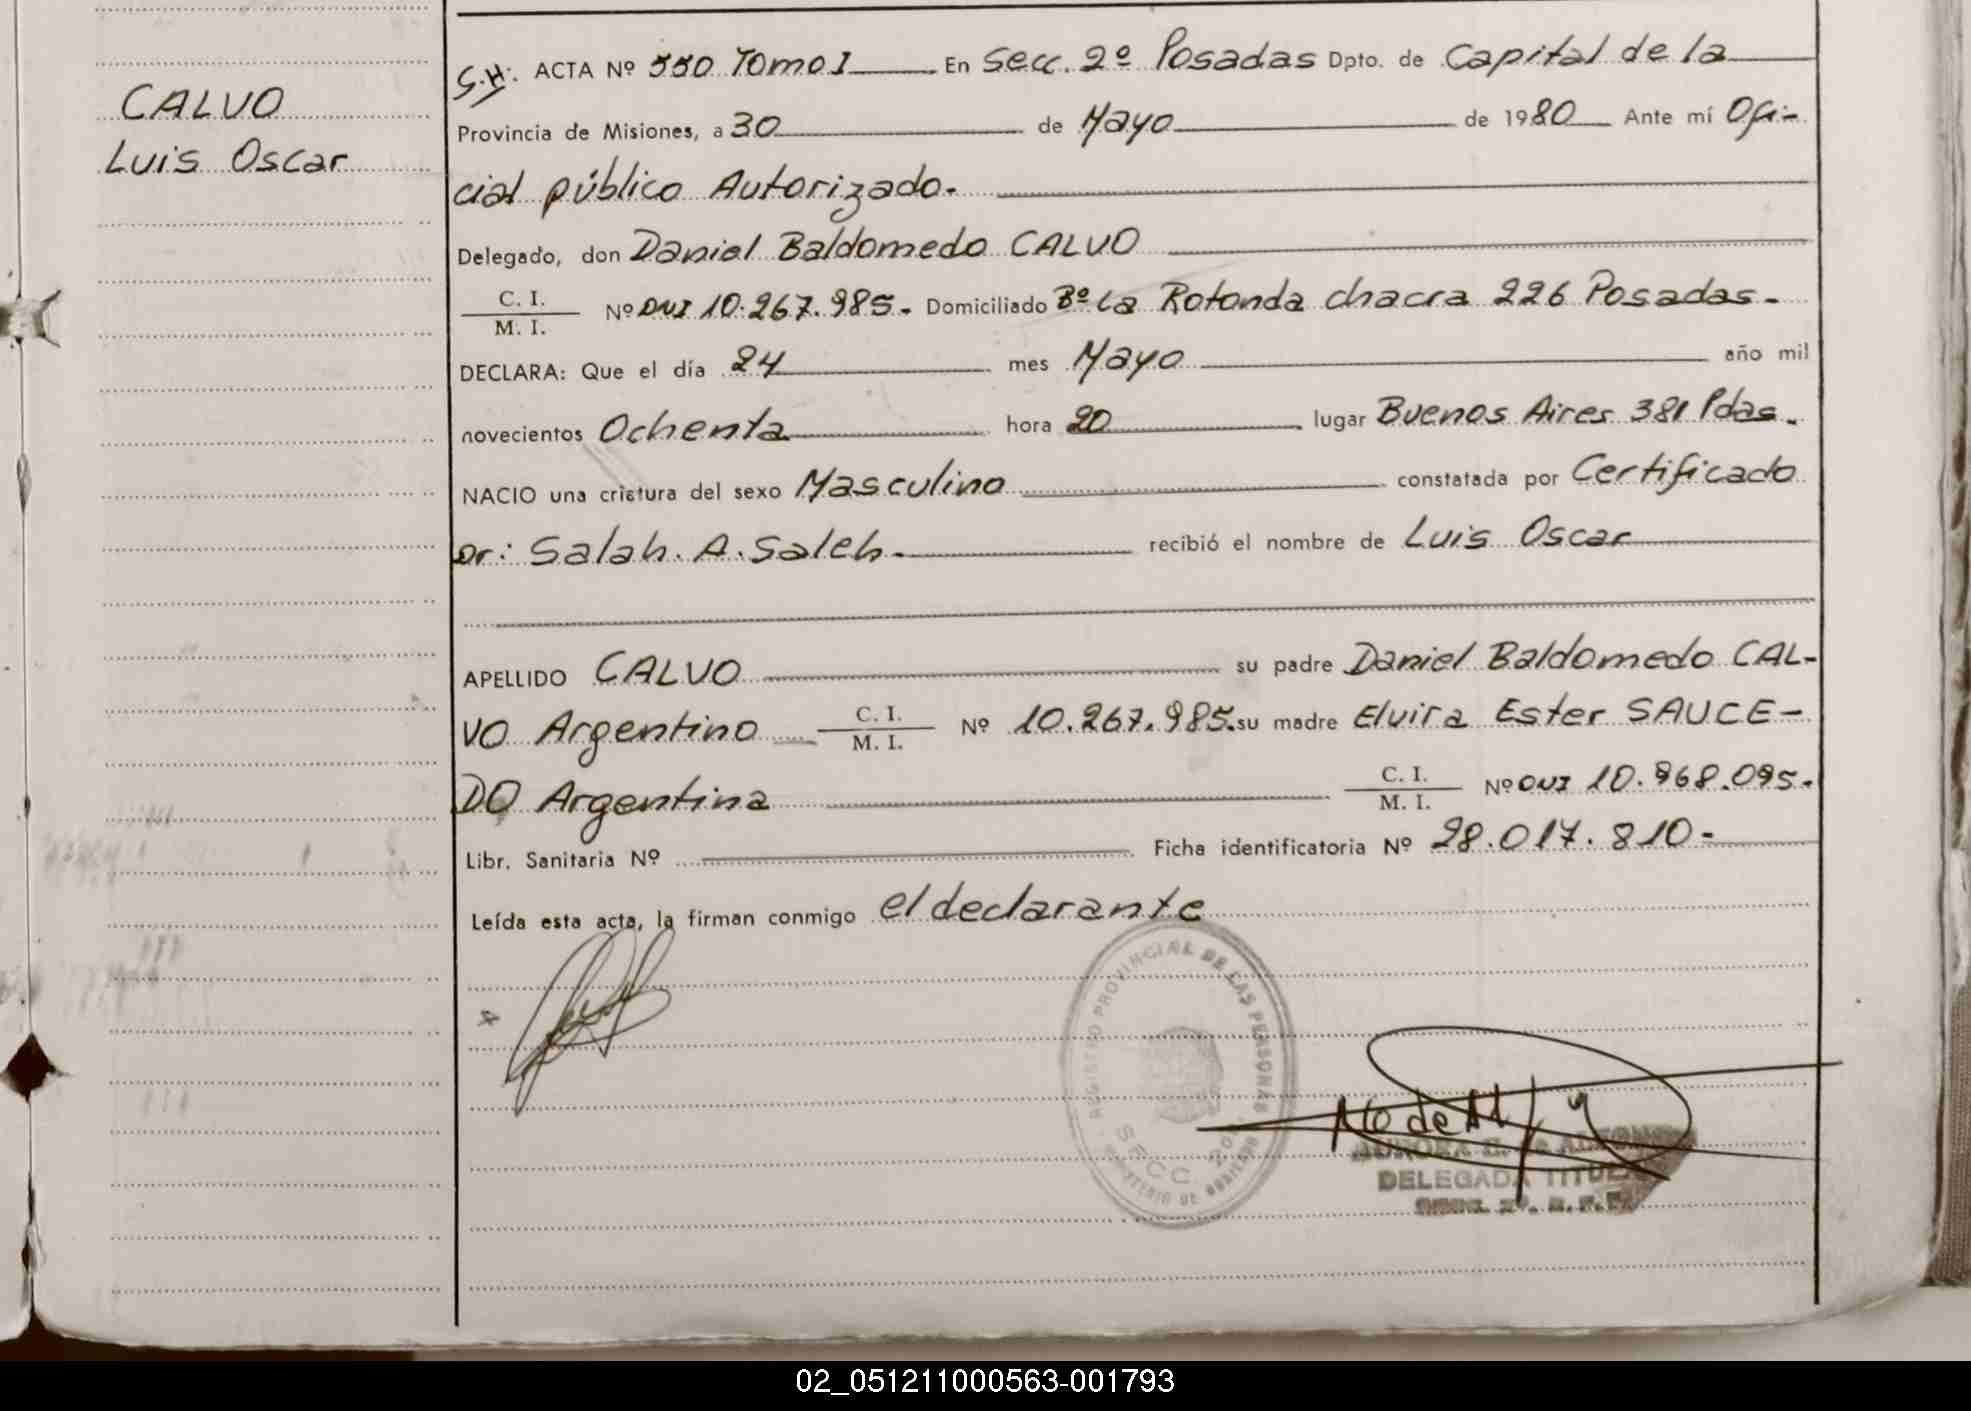 CALVO
Luis Oscar
S.H. ACTA Nº 550 Tomo I En Secc. 2º Posadas Dpto. de Capital de la
Provincia de Misiones, a 30 de Mayo de 1980 Ante mí Ofi-
cial público Autorizado.
Delegado, don Daniel Baldomedo CALVO
C. I.
M. I.
Nº DNI 10.267.985. Domiciliado Bº La Rotonda chacra 226 Posadas.
DECLARA: Que el día 24 mes Mayo año mil
novecientos Ochenta hora 20 lugar Buenos Aires 381 Pdas.
NACIO una criatura del sexo Masculino constatada por Certificado
Dr: Salah. A. Saleh. recibió el nombre de Luis Oscar
APELLIDO CALVO su padre Daniel Baldomedo CAL-
VO Argentino C. I. M. I. Nº 10.267.985. su madre Elvira Ester SAUCE-
DO Argentina C. I. M. I. Nº DNI 10.968.095.
Libr. Sanitaria Nº Ficha identificatoria Nº 28.017.810-
Leída esta acta, la firman conmigo el declarante
REGISTRO PROVINCIAL DE LAS PERSONAS
SECC. 2º
MINISTERIO DE GOBIERNO
AURORA E. de
DELEGADA TITULAR
02_051211000563-001793